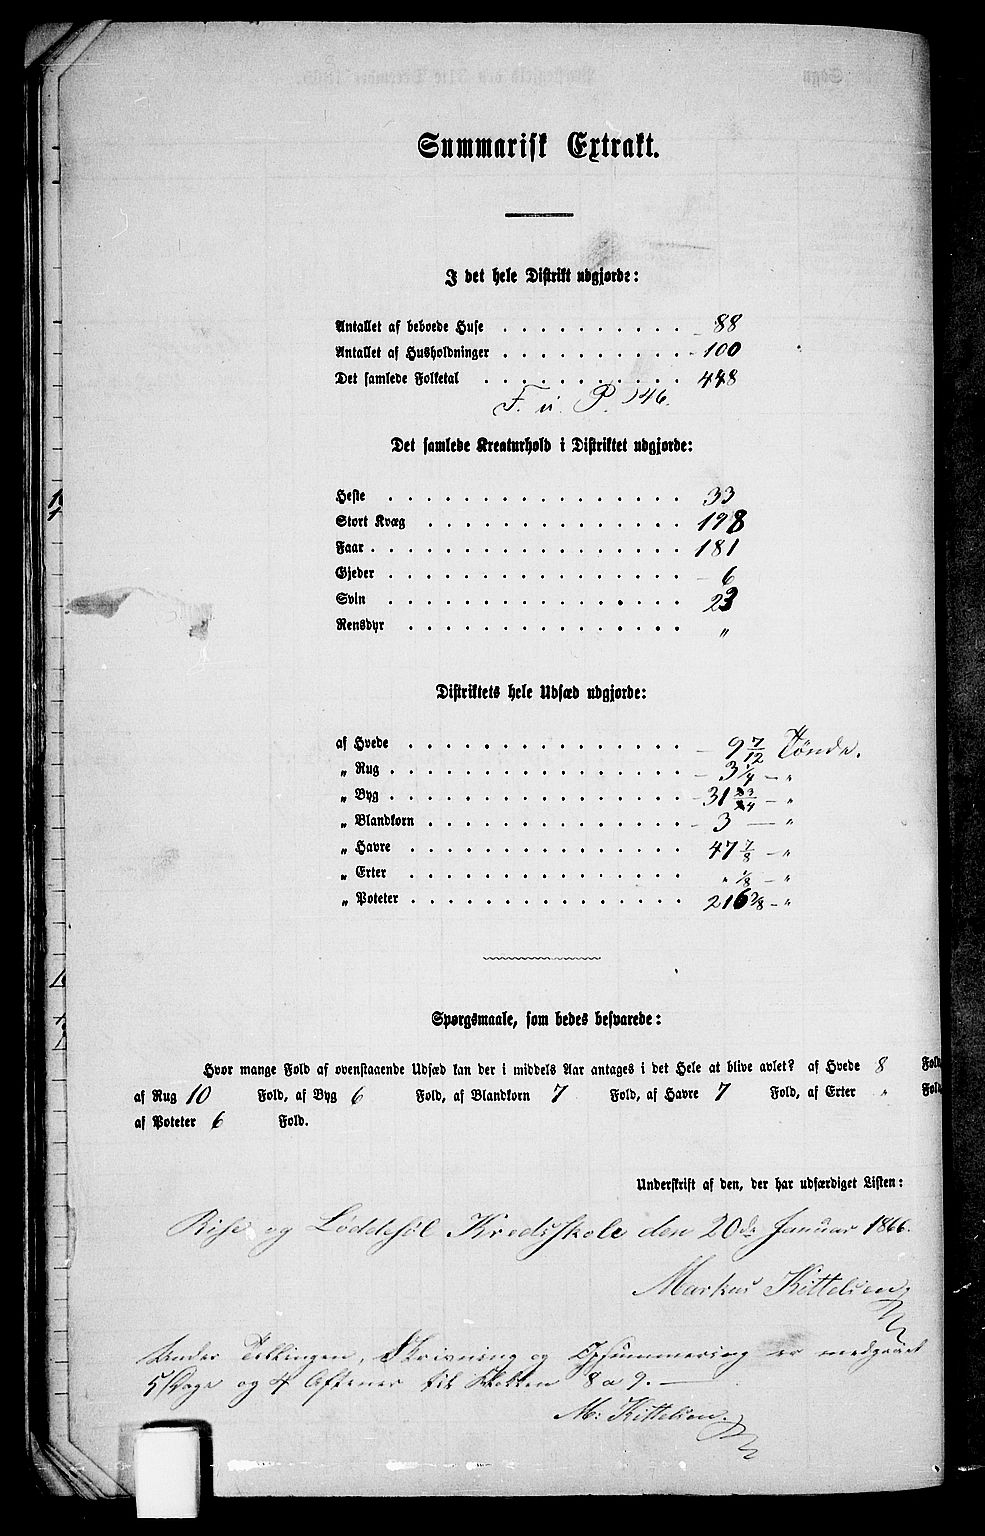 Summarisk Extrakt.
I det hele Distrikt udgjorde:
Antallet af beboede Huse . . . . . . . . . . 88
Antallet af Husholdninger . . . . . . . . . . 100
Det samlede Folketal . . . . . . . . . . 448
F. u. P. 546.
Det samlede Kreaturhold i Distriktet udgjorde:
Heste . . . . . . . . . . 33
Stort Kvæg . . . . . . . . . . 198
Faar . . . . . . . . . . 181
Gjeder . . . . . . . . . . 6
Svin . . . . . . . . . . 23
Rensdyr . . . . . . . . . . "
Distriktets hele Udsæd udgjorde:
af Hvede . . . . . . . . . . 9 7/12 Tønde.
" Rug . . . . . . . . . . 3 1/4 — "
" Byg . . . . . . . . . . 31 23/24 — "
" Blandkorn . . . . . . . . . . 3 — "
" Havre . . . . . . . . . . 47 7/8 — "
" Erter . . . . . . . . . . " 1/8 — "
" Poteter . . . . . . . . . . 216 3/8 — "
Spørgsmaale, som bedes besvarede:
Hvor mange Fold af ovenstaaende Udsæd kan der i middels Aar antages i det Hele at blive avlet? af Hvede 8 Fold,
af Rug 10 Fold, af Byg 6 Fold, af Blandkorn 7 Fold, af Havre 7 Fold, af Erter " Fold,
af Poteter 6 Fold.
Underskrift af den, der har udfærdiget Listen:
Rise og Løddesøl Kredsskole den 20de Januar 1866.
Markus Kittelsen.
Under Tællingen, Skrivning og Opsummering er medgaaet
5 Dage og 4 Aftener til Klokken 8 a 9. —
M: Kittelsen.